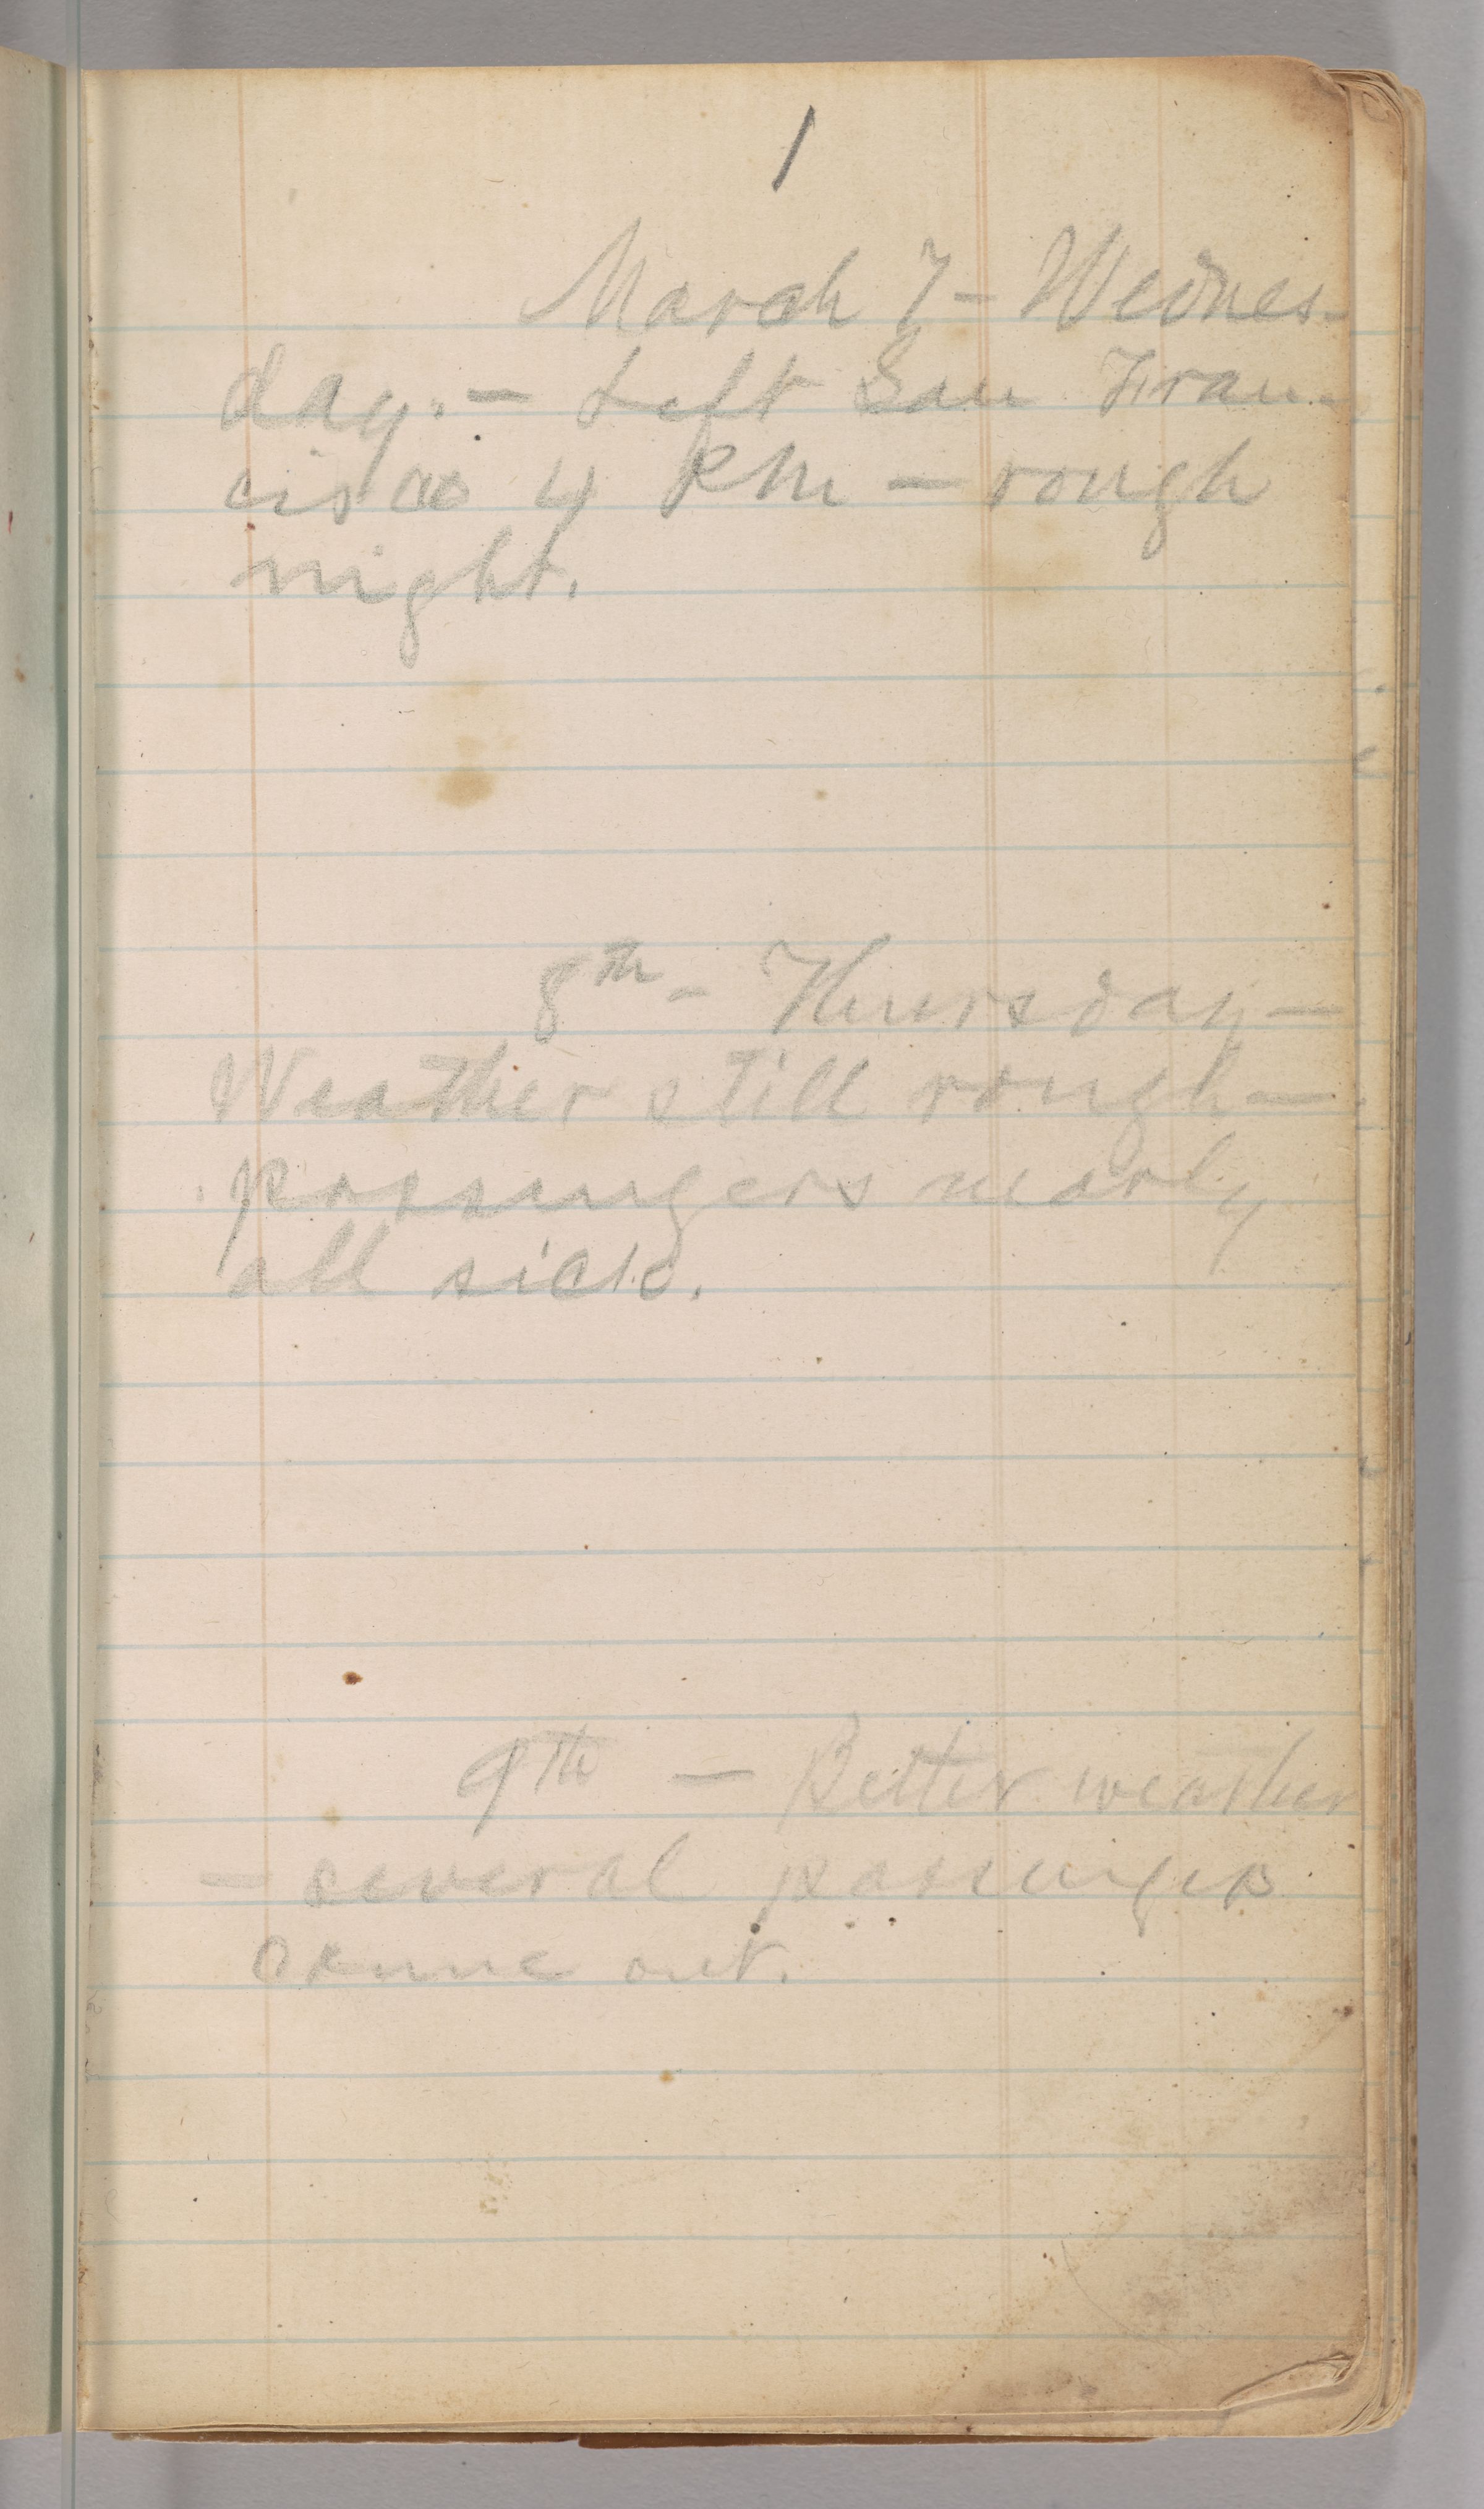 1
March 7 - Wednes-
day. - Left San Fran-
cisco 4 PM - rough
night.
8th - Thursday -
Weather still rough -
passengers nearly
all sick.
9th - Better weather
- several passengers
came out.